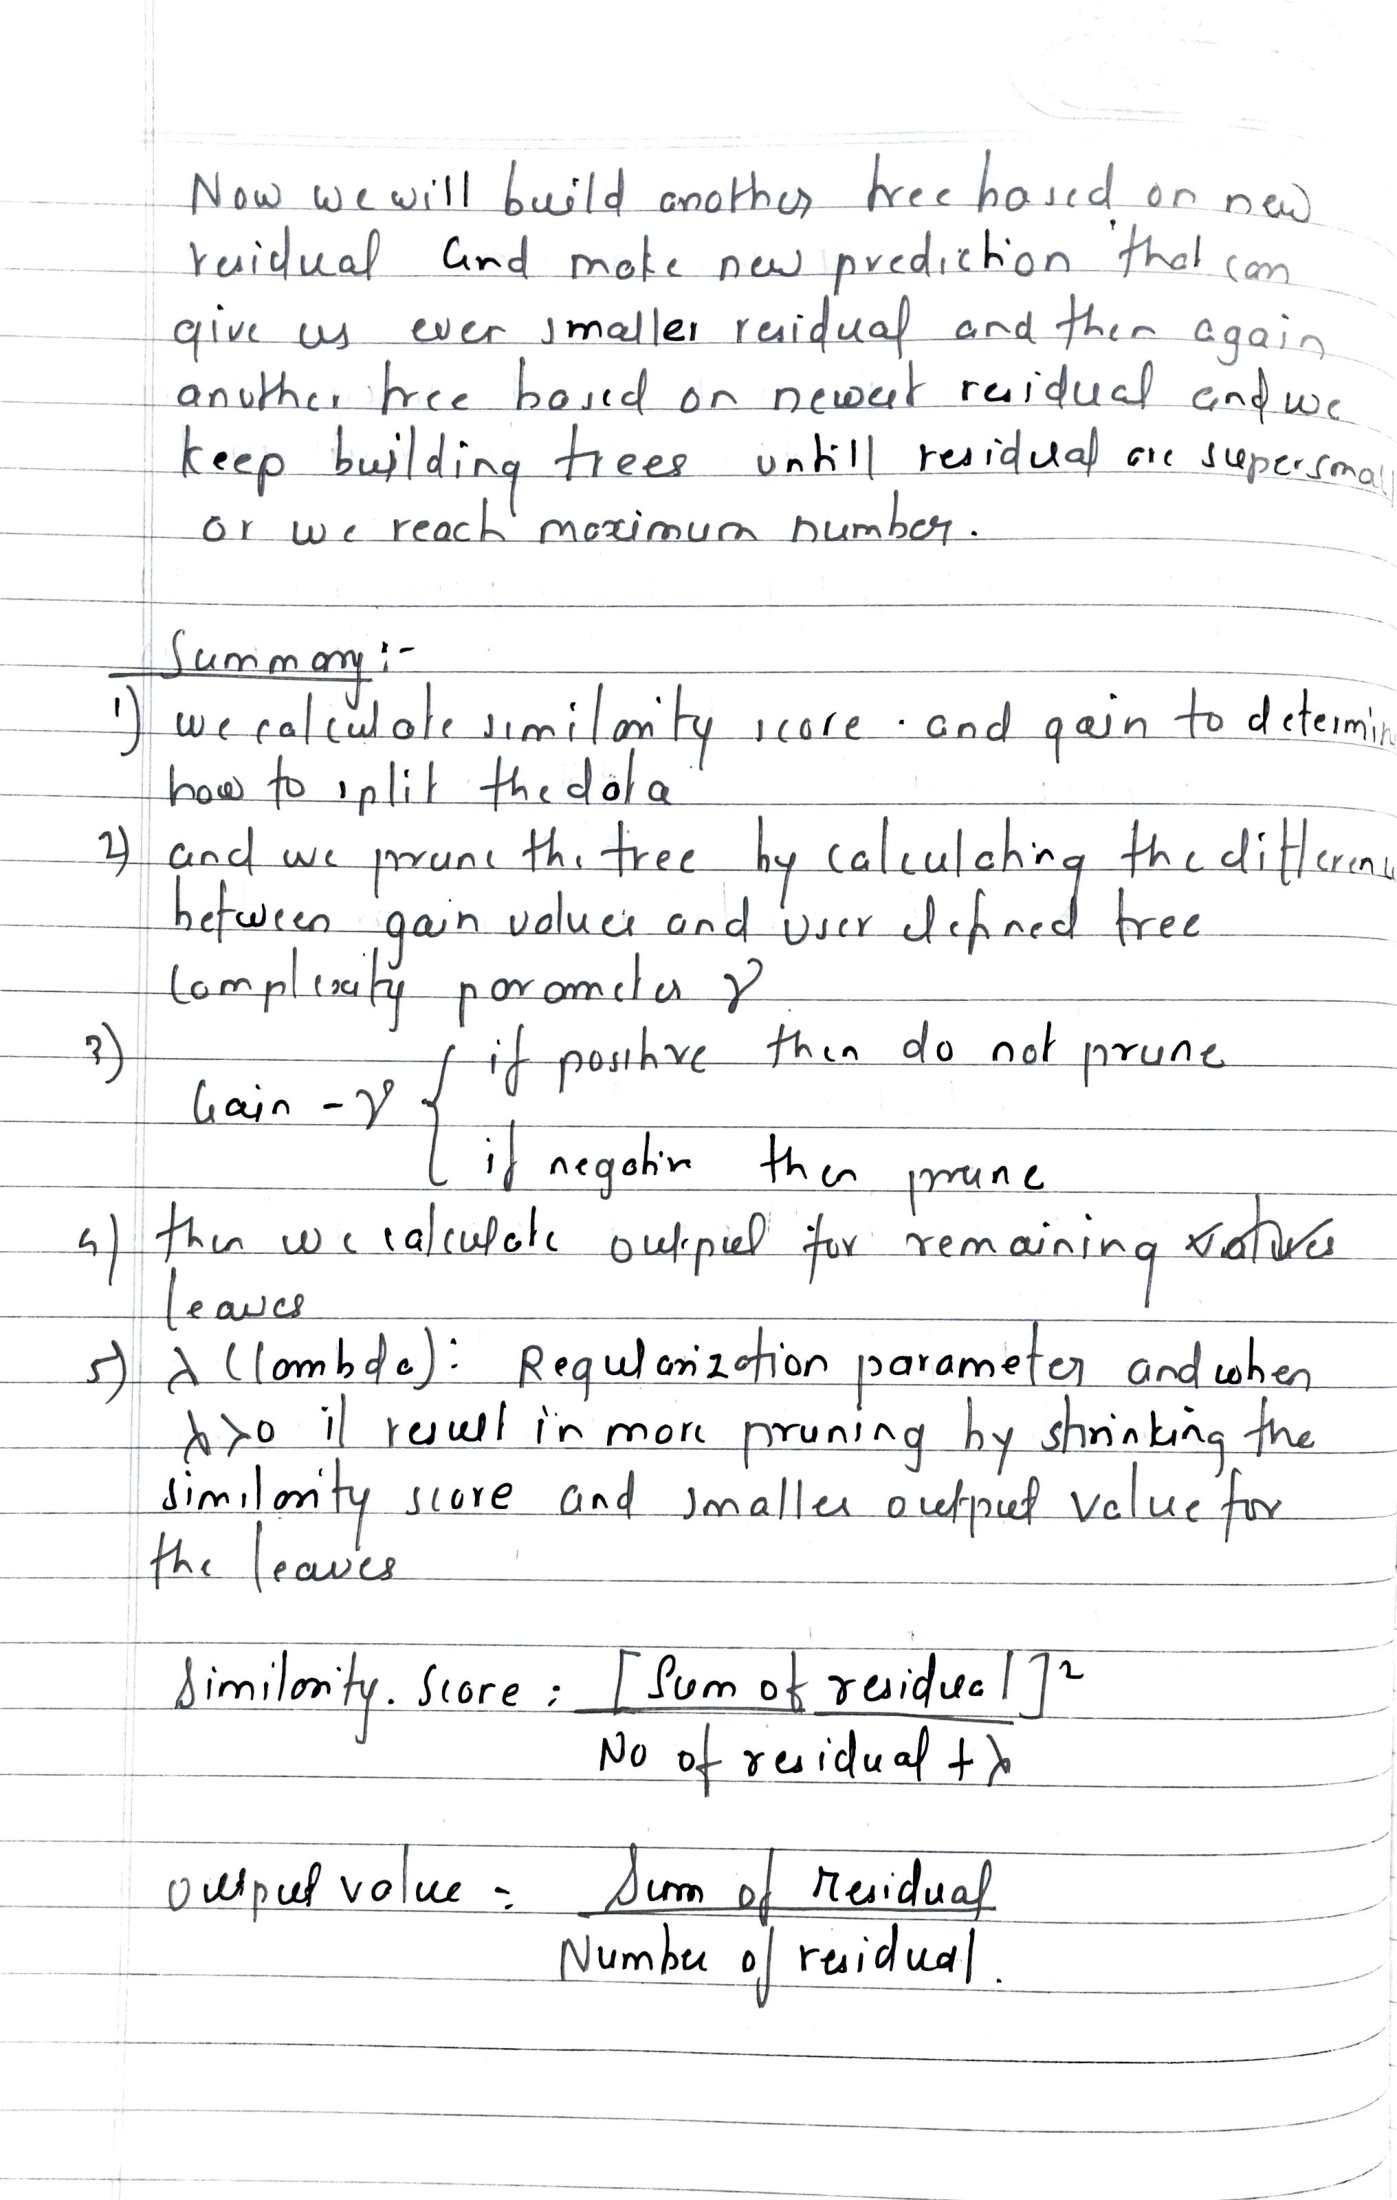 Now we will build another tree based on new
residual and make new prediction that can
give us ever smaller residual and then again
another tree based on newest residual and we
keep building trees untill residual are supersmall
or we reach maximum number.
Summary :-
1) we calculate similarity score . and gain to determin
how to split the data
2) and we prune the tree by calculating the differenc
between gain values and user defined tree
complexity parameter γ
3)
if positive then do not prune
Gain - γ {
if negative then prune
4) then we calculate output for remaining
leaves
5) λ (lambda): Regularization parameter and when
λ>0 it result in more pruning by shrinking the
similarity score and smaller output value for
the leaves
Similarity. Score : [Sum of residual]²
No of residual + λ
output value = Sum of Residual
Number of residual.